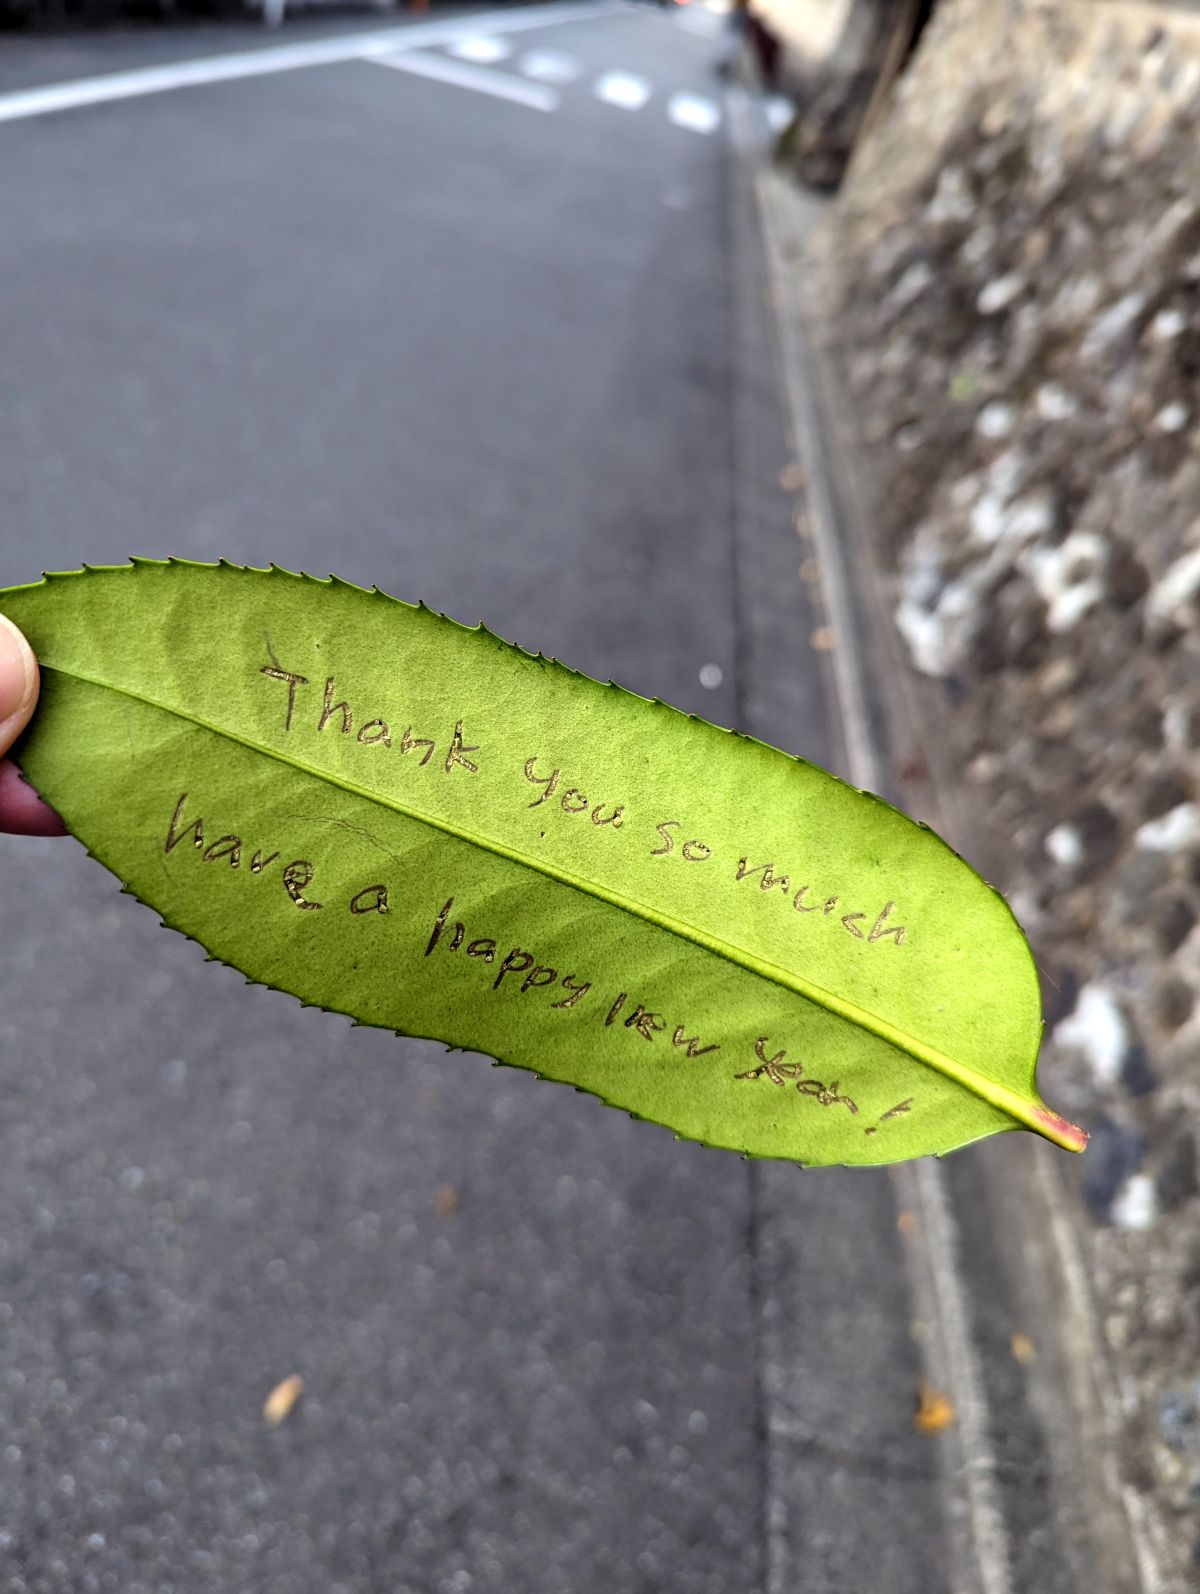 Thank you so much
have a happy new year!